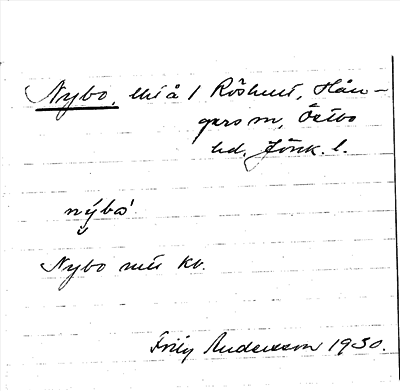 Nybo, lht å 1 Röshult, Hån-
gers sn, Östbo
hd, Jönk. l.
nýbò
Nybo mtu Kv.
Andersson 1930.